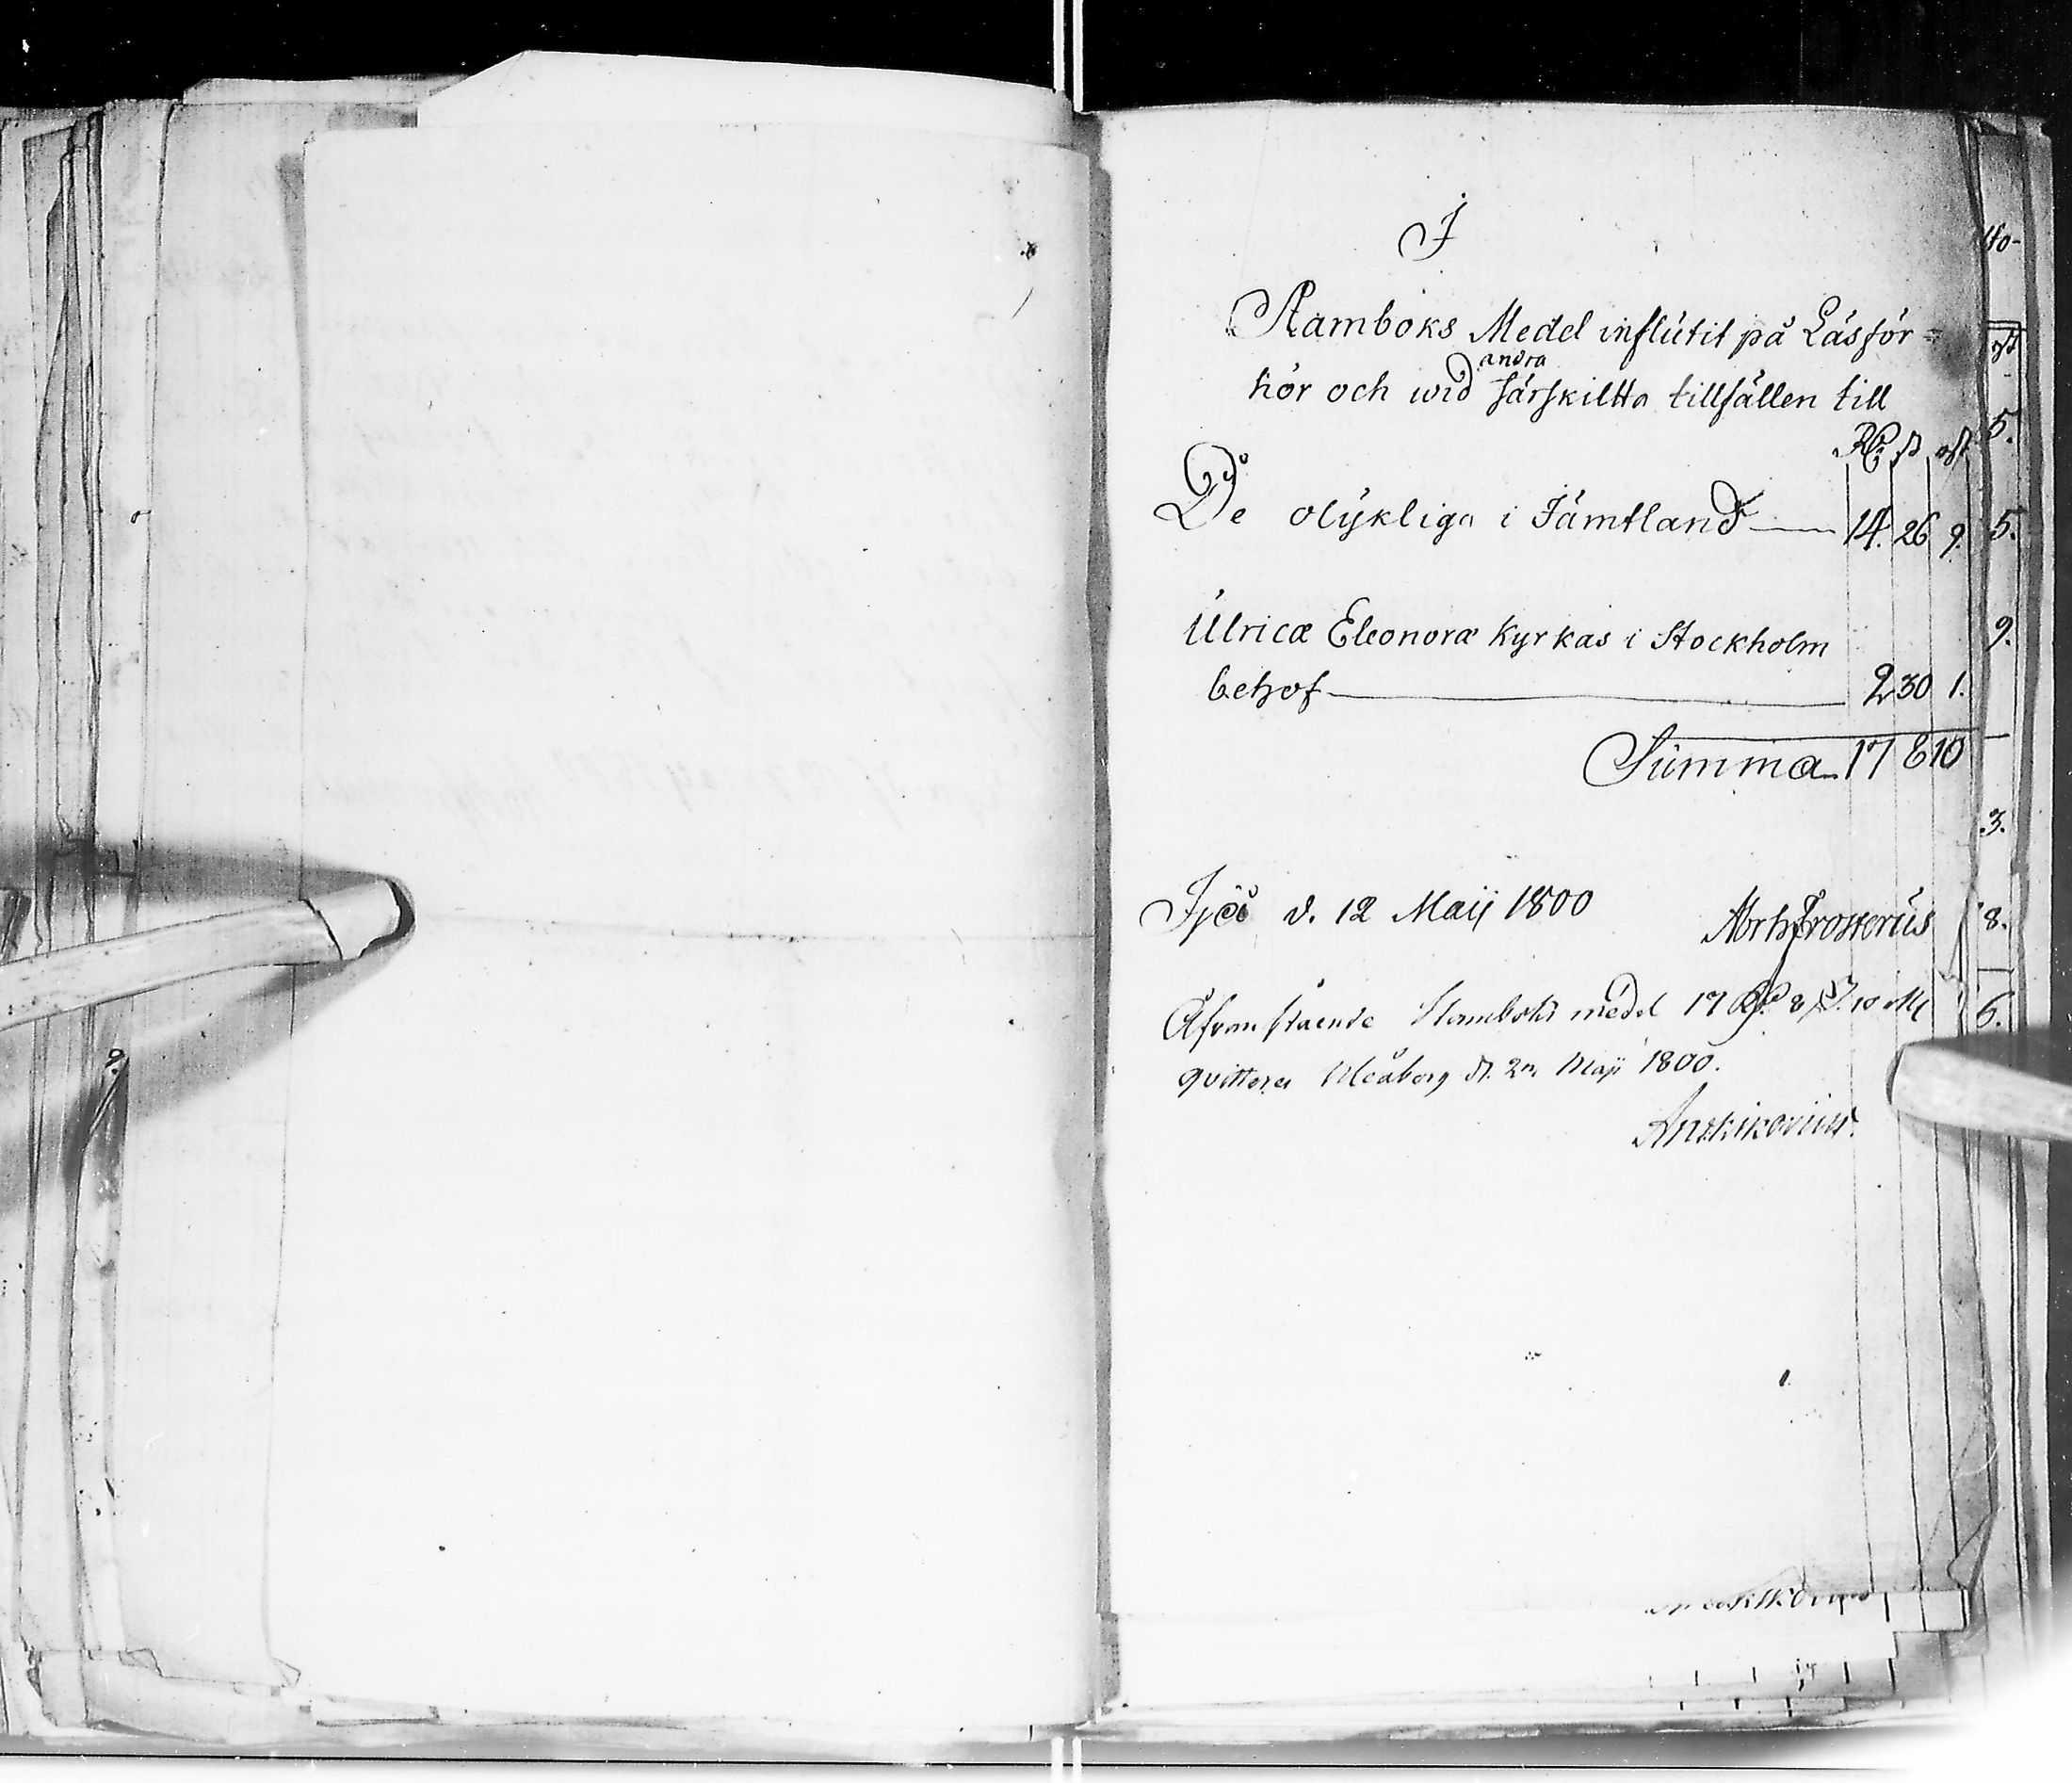 I
Stamboks Medel influtit på Läsför=
hör och wid andra särskiltta tillfällen till
Rd s rst
De olykliga i Jämtland — 14. 26 9.
Ulricæ Eleonoræ Kyrkas i Stockholm
behof — 2 30 1.
Summa 17 8 10
Ijo d. 12 Maij 1800 Abrh Frosterus
Åfvanstående Stamboks medel 17 Rd. 8 s. 10
qvitteras Uleåborg d. Maji 1800.
5.
5.
9.
3.
8.
6.